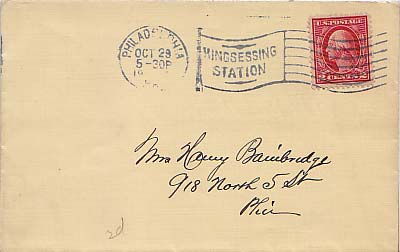 PHILADELPHIA
OCT 29
5-30P
19
KINGSESSING
STATION
U.S. POSTAGE
2 CENTS 2
Mrs Harry Bainbridge
918 North 5 St
Phila
2d